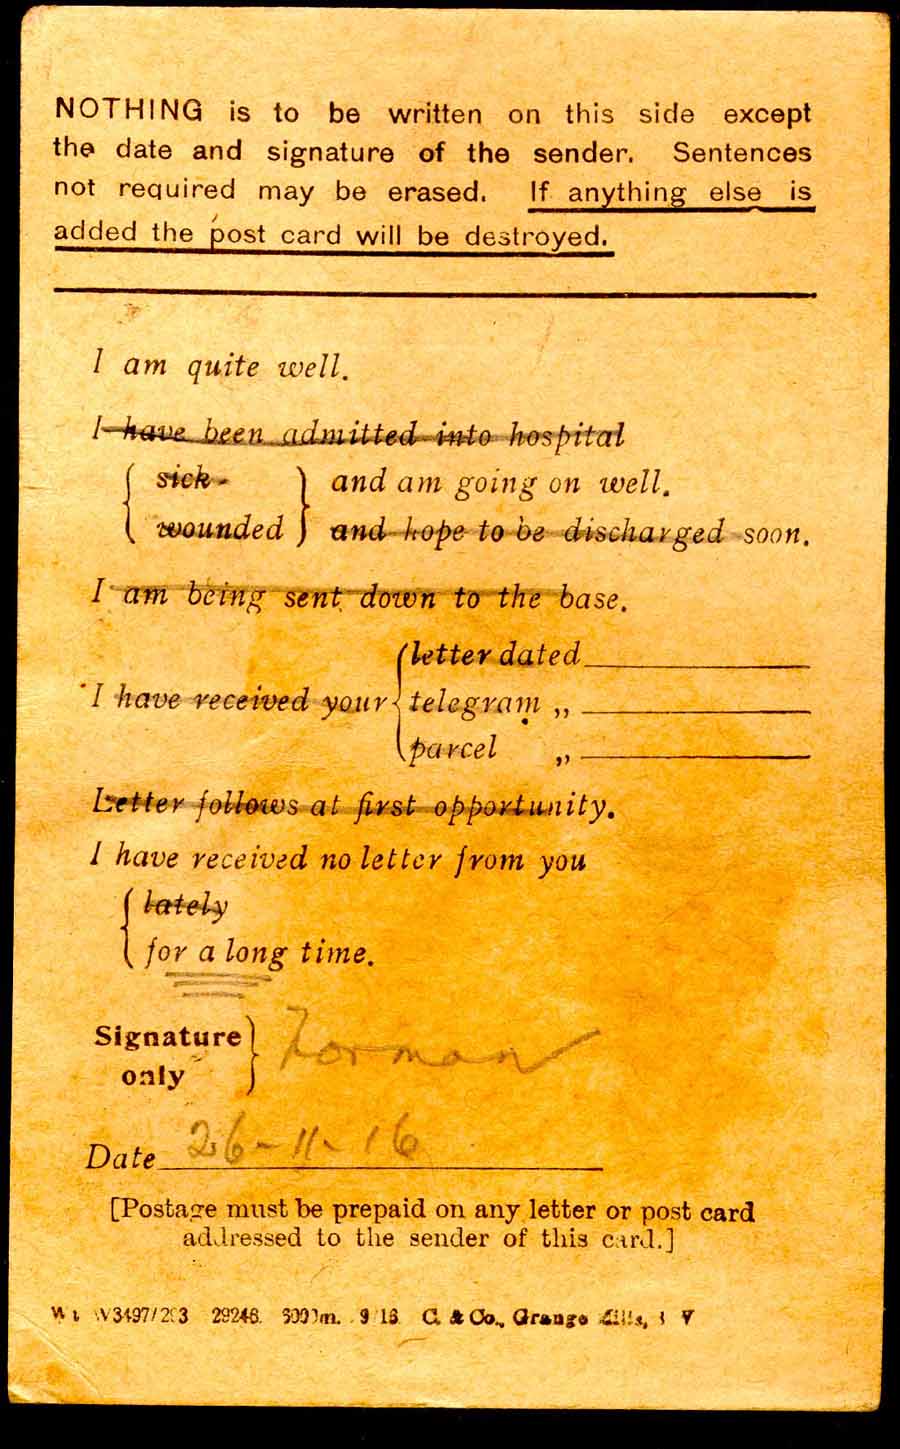 NOTHING is to be written on this side except
the date and signature of the sender. Sentences
not required may be erased. If anything else is
added the post card will be destroyed.
I am quite well.
I have been admitted into hospital
sick and am going on well.
wounded and hope to be discharged soon.
I am being sent down to the base.
letter dated
I have received your telegram „
parcel „
Letter follows at first opportunity.
I have received no letter from you
lately
for a long time.
Signature
only
Date 26-11-16
[Postage must be prepaid on any letter or post card
addressed to the sender of this card.]
29246. C. & Co., Grange